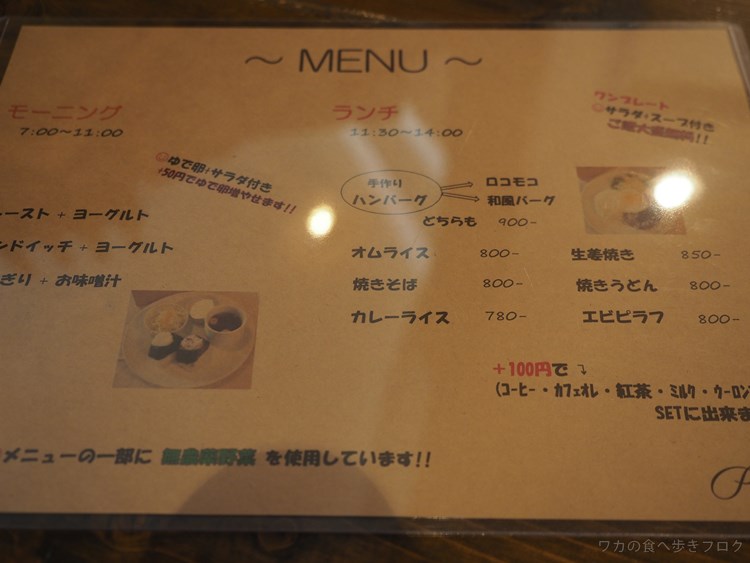 ～ MENU ～
モーニング
7:00～11:00
ゆで卵+サラダ付き
+50円でゆで卵増やせます!!
ースト + ヨーグルト
ンドイッチ + ヨーグルト
ぎり + お味噌汁
ランチ
11:30～14:00
ワンプレート
サラダ+スープ付き
ご飯大盛無料!!
手作り
ハンバーグ
ロコモコ
和風バーグ
どちらも 900-
オムライス 800-
生姜焼き 850-
焼きそば 800-
焼きうどん 800-
カレーライス 780-
エビピラフ 800-
+100円で
(コーヒー・カフェオレ・紅茶・ミルク・ウーロン
SETに出来ま
メニューの一部に 無農薬野菜 を使用しています!!
ワカの食べ歩きブログ